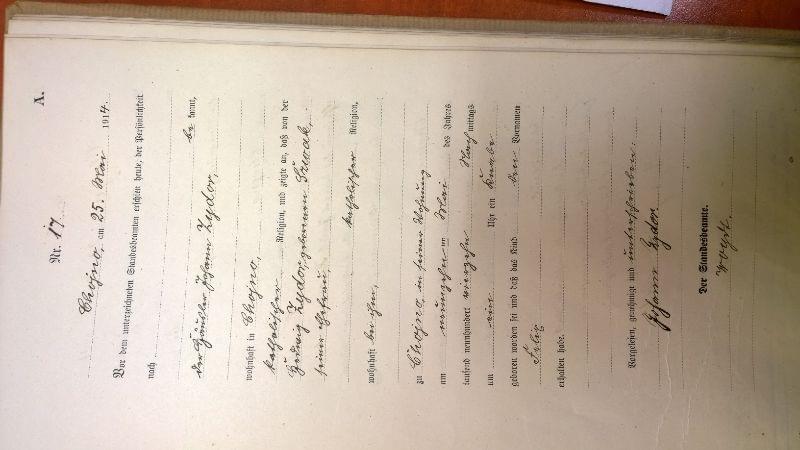 A.
Nr. 17
Chojno, am 25. Mai 1914.
Vor dem unterzeichneten Standesbeamten erschien heute, der Persönlichkeit
nach
bekannt,
der Häusler Johann Zydor,
wohnhaft in Chojno,
katholischer Religion, und zeigte an, daß von der
Hedwig Zydor, geborenen Szwak,
seiner Ehefrau,
katholischer Religion,
wohnhaft bei ihm,
zu Chojno, in seiner Wohnung
am neunzehnten Mai des Jahres
tausend neunhundert vierzehn Nachmittags
um ein Uhr ein Knabe
geboren worden sei und daß das Kind den Vornamen
Felix
erhalten habe.
Vorgelesen, genehmigt und unterschrieben:
Johann Zydor.
Der Standesbeamte.